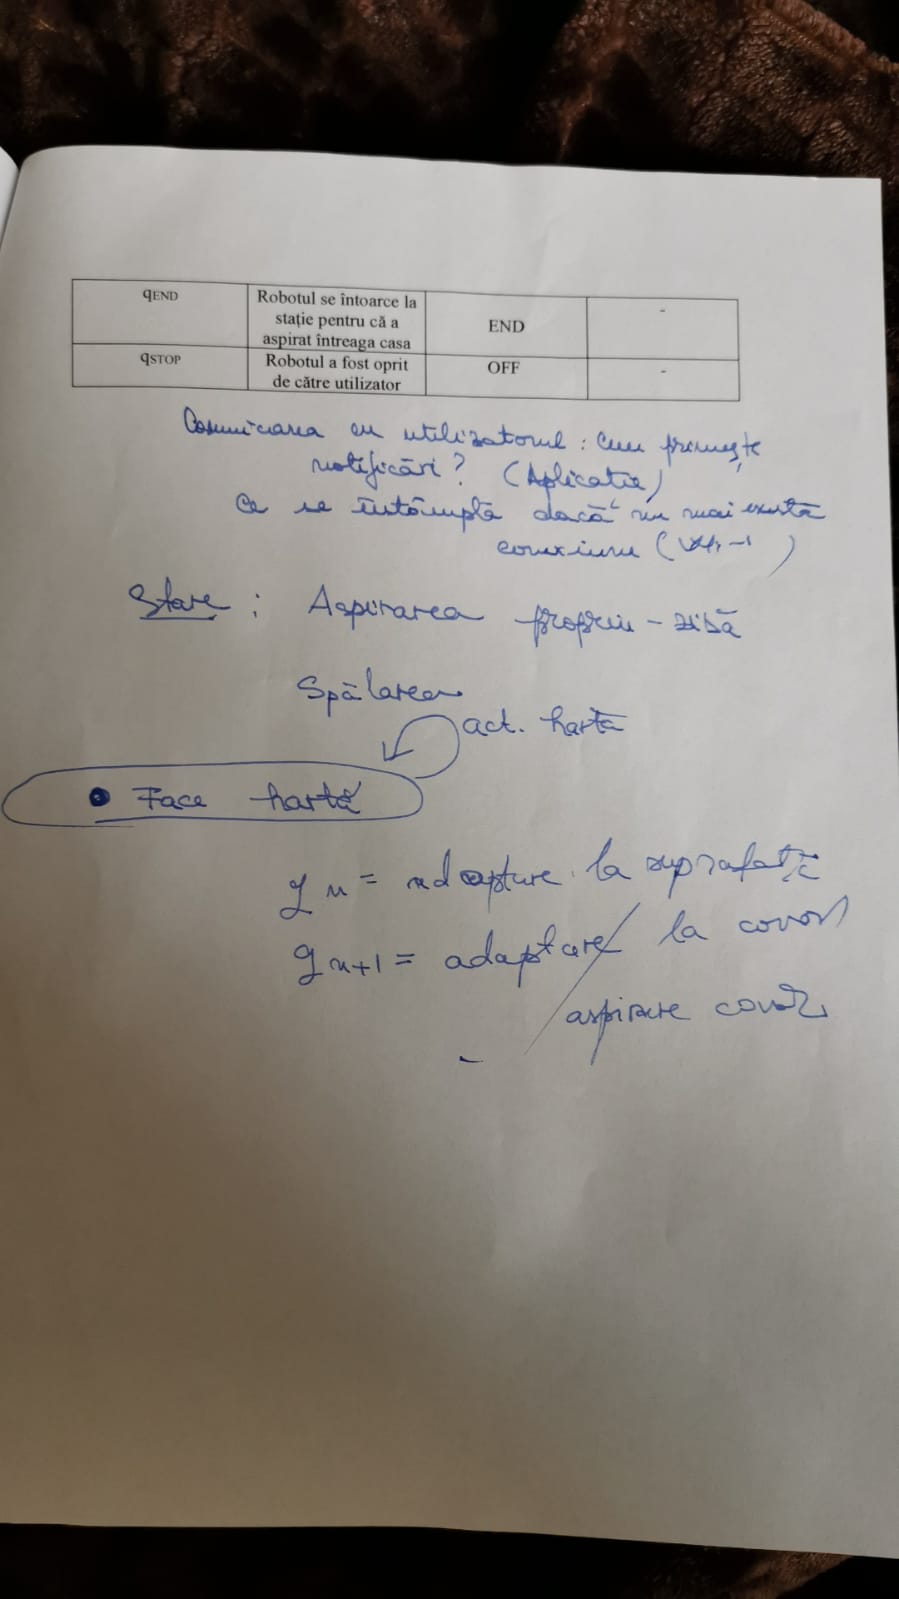 qEND
Robotul se întoarce la
stație pentru că a
aspirat întreaga casa
END
-
qSTOP
Robotul a fost oprit
de către utilizator
OFF
-
Comunicarea cu utilizatorul: Cum primește
notificări? (Aplicație)
Ce se întâmplă dacă nu mai există
conexiune (
Stare: Aspirarea propriu-zisă
Spălarea
act. hartă
• Face hartă
qn = adaptare la suprafață
qn+1 = adaptare / la covor
aspirare covor